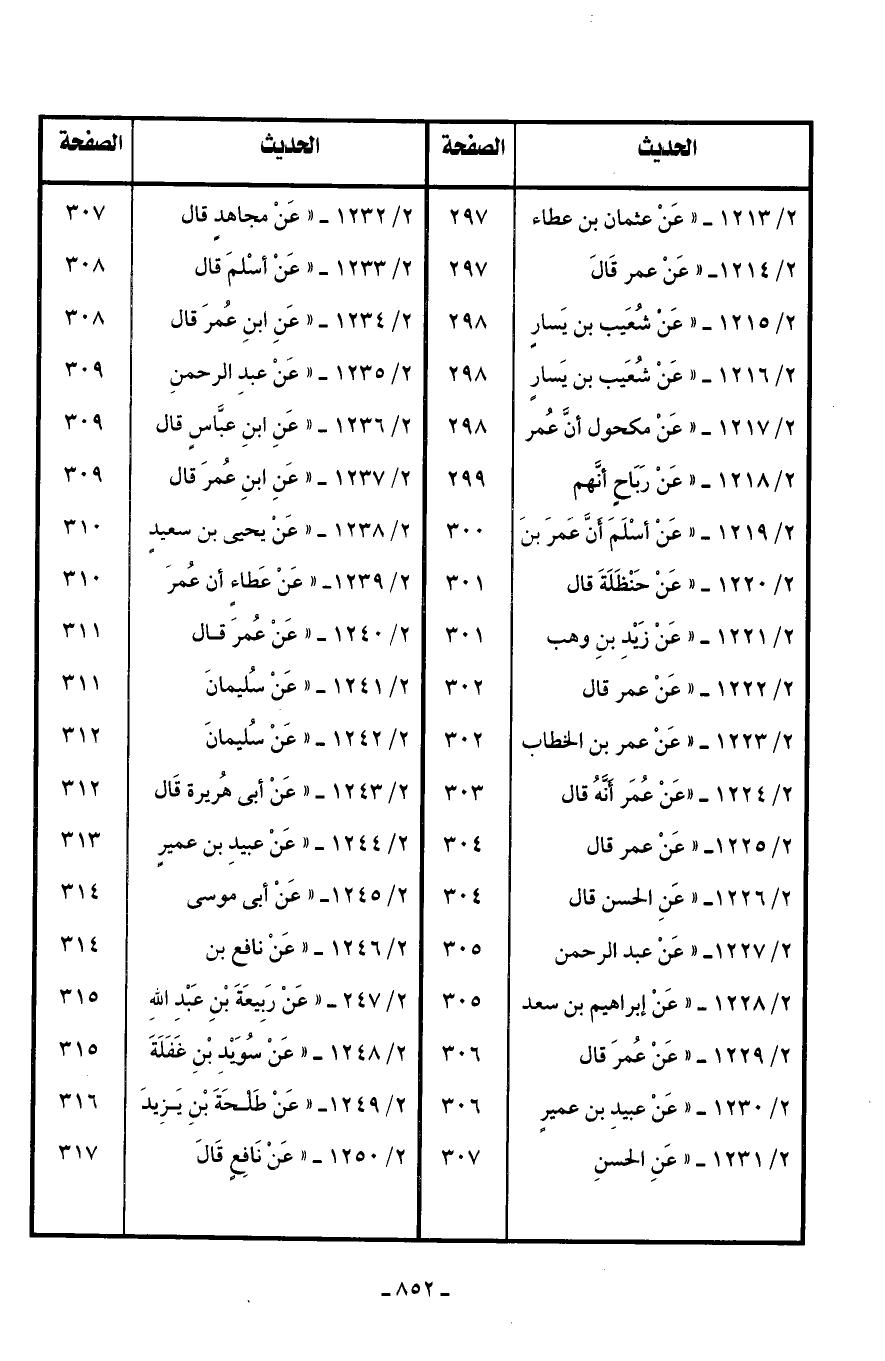 الحديث الصفحة الحديث الصفحة
٢/ ١٢١٣ ـ « عَنْ عثمان بن عطاء ٢٩٧ ٢/ ١٢٣٢ ـ « عَنْ مجاهدٍ قال ٣٠٧
٢/ ١٢١٤ـ « عَنْ عمر قَالَ ٢٩٧ ٢/ ١٢٣٣ ـ « عَنْ أسْلمَ قال ٣٠٨
٢/ ١٢١٥ ـ « عَنْ شُعَيب بن يَسارٍ ٢٩٨ ٢/ ١٢٣٤ ـ « عَنِ ابنِ عُمرَ قال ٣٠٨
٢/ ١٢١٦ ـ « عَنْ شُعَيب بن يَسارٍ ٢٩٨ ٢/ ١٢٣٥ ـ « عَنْ عبدِ الرحمنِ ٣٠٩
٢/ ١٢١٧ ـ « عَنْ مكحول أنَّ عُمر ٢٩٨ ٢/ ١٢٣٦ ـ « عَنِ ابنِ عبَّاسٍ قال ٣٠٩
٢/ ١٢١٨ ـ « عَنْ رَبَاحٍ أنَّهم ٢٩٩ ٢/ ١٢٣٧ ـ « عَنِ ابنِ عُمرَ قال ٣٠٩
٢/ ١٢١٩ ـ « عَنْ أسْلَمَ أَنَّ عَمرَ بنَ ٣٠٠ ٢/ ١٢٣٨ ـ « عَنْ يحيى بن سعيدٍ ٣١٠
٢/ ١٢٢٠ ـ « عَنْ حَنْظَلَةَ قال ٣٠١ ٢/ ١٢٣٩ـ « عَنْ عَطاءٍ أن عُمرَ ٣١٠
٢/ ١٢٢١ ـ « عَنْ زَيْدِ بنِ وهب ٣٠١ ٢/ ١٢٤٠ ـ « عَنْ عُمرَ قـال ٣١١
٢/ ١٢٢٢ ـ « عَنْ عمر قال ٣٠٢ ٢/ ١٢٤١ ـ « عَنْ سُليمانَ ٣١١
٢/ ١٢٢٣ ـ « عَنْ عمر بن الخطاب ٣٠٢ ٢/ ١٢٤٢ ـ « عَنْ سُليمانَ ٣١٢
٢/ ١٢٢٤ ـ «عَنْ عُمَر أَنَّهُ قال ٣٠٣ ٢/ ١٢٤٣ ـ « عَنْ أبى هُريرة قَال ٣١٢
٢/ ١٢٢٥ـ « عَنْ عمر قال ٣٠٤ ٢/ ١٢٤٤ ـ « عَنْ عبيدِ بن عميرٍ ٣١٣
٢/ ١٢٢٦ـ « عَنِ الحسن قال ٣٠٤ ٢/ ١٢٤٥ـ « عَنْ أبى موسى ٣١٤
٢/ ١٢٢٧ـ « عَنْ عبد الرحمن ٣٠٥ ٢/ ١٢٤٦ ـ « عَنْ نافع بن ٣١٤
٢/ ١٢٢٨ ـ « عَنْ إبراهيم بن سعد ٣٠٥ ٢/ ٢٤٧ ـ « عَنْ رَبِيعَةَ بْنِ عَبْدِ اللهِ ٣١٥
٢/ ١٢٢٩ ـ « عَنْ عُمرَ قال ٣٠٦ ٢/ ١٢٤٨ ـ « عَنْ سُوَيْدِ بْنِ غَفَلَةَ ٣١٥
٢/ ١٢٣٠ ـ « عَنْ عبيدِ بن عميرٍ ٣٠٦ ٢/ ١٢٤٩ـ « عَنْ طَلْـحَةَ بْنِ يَـزِيدَ ٣١٦
٢/ ١٢٣١ ـ « عَنِ الحسنِ ٣٠٧ ٢/ ١٢٥٠ ـ « عَنْ نَافِعٍ قَالَ ٣١٧
ـ ٨٥٢ ـ